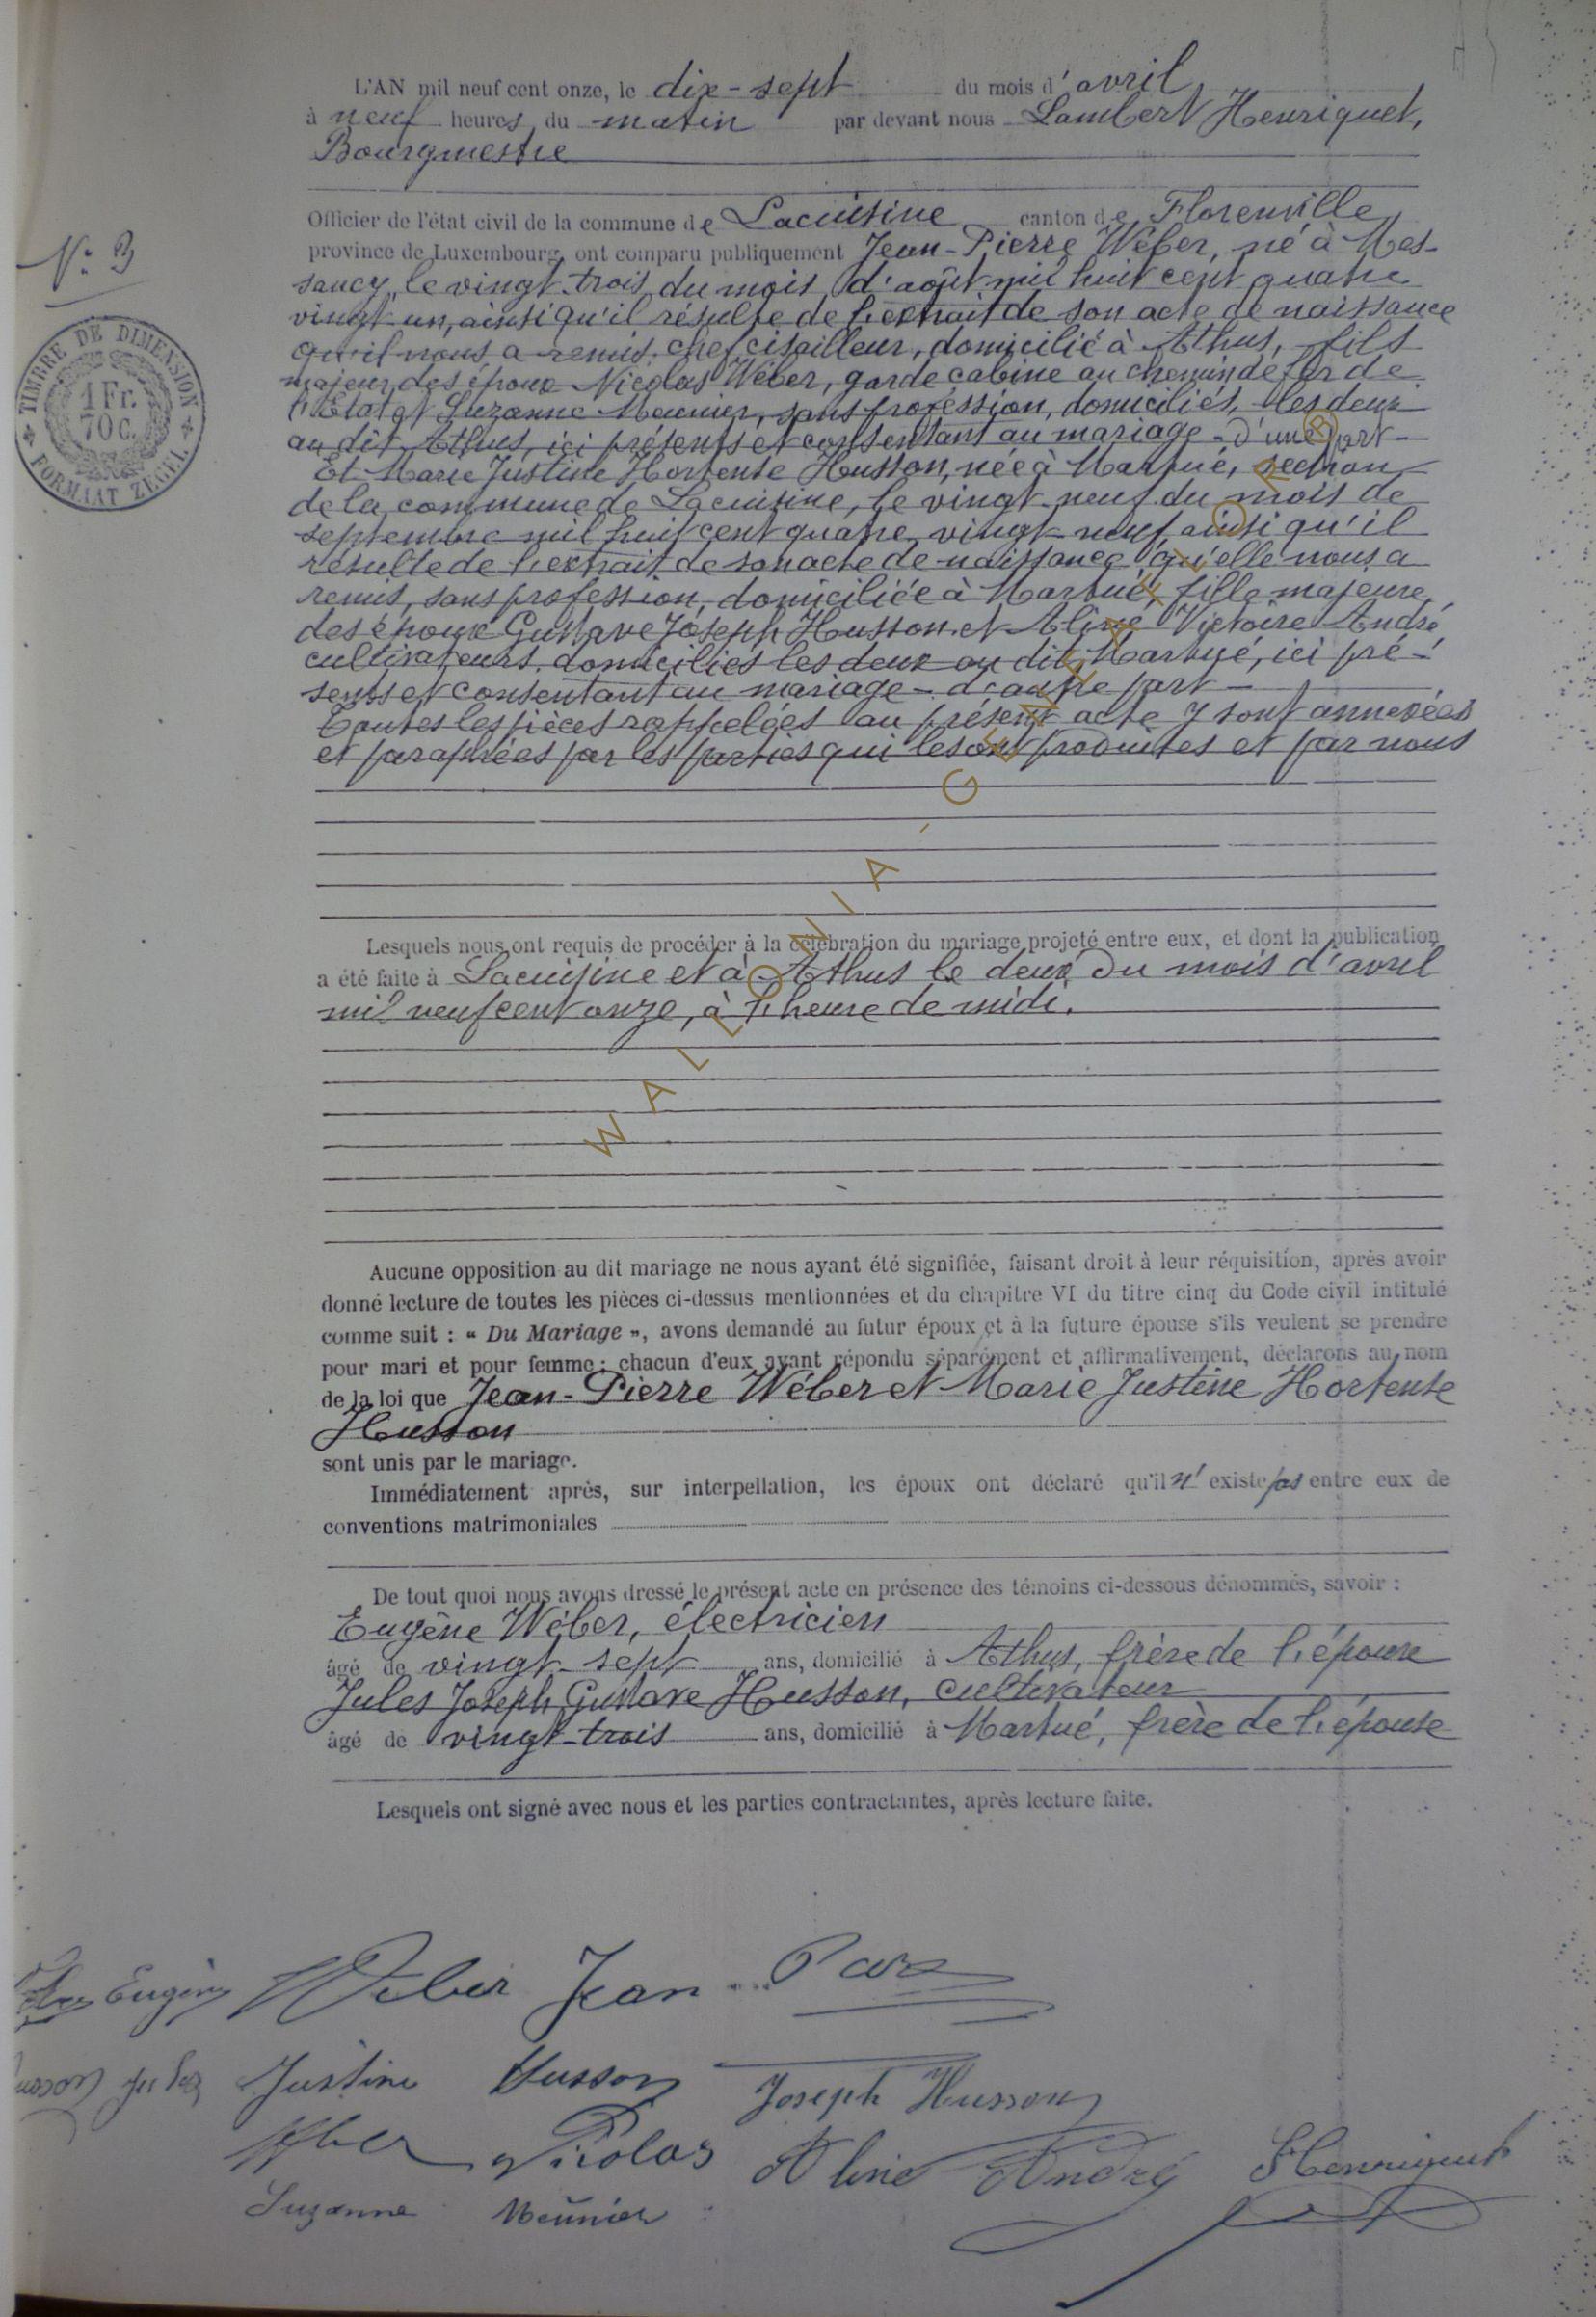 L'AN mil neuf cent onze, le dix-sept du mois d'avril
à neuf heures du matin par devant nous Lambert Henriquet,
Bourgmestre
Officier de l'état civil de la commune de Lacuisine canton de Florenville
province de Luxembourg, ont comparu publiquement Jean-Pierre Wéber, né à Mes-
N° 3
sancy, le vingt-trois du mois d'août mil huit cent quatre
vingt-un, ainsi qu'il résulte de l'extrait de son acte de naissance
TIMBRE DE DIMENSION
1 Fr.
70 c.
FORMAAT ZEGEL
qu'il nous a remis, chef cisailleur, domicilié à Athus, fils
majeur des époux Nicolas Wéber, garde cabine au chemin de fer de
l'Etat et Suzanne Meunier, sans profession, domiciliés, les deux
au dit Athus, ici présents et consentant au mariage - d'une part -
Et Marie Justine Hortense Husson, née à Martué, section
de la commune de Lacuisine, le vingt-neuf du mois de
septembre mil huit cent quatre vingt-neuf, ainsi qu'il
résulte de l'extrait de son acte de naissance qu'elle nous a
remis, sans profession, domiciliée à Martué, fille majeure
des époux Gustave Joseph Husson et Aline Victoire André
cultivateurs, domiciliés les deux au dit Martué, ici pré-
sents et consentant au mariage - d'autre part -
Toutes les pièces rappelées au présent acte y sont annexées
et paraphées par les parties qui les ont produites et par nous
WALLONIA-GENEALOGIE
Lesquels nous ont requis de procéder à la célébration du mariage projeté entre eux, et dont la publication
a été faite à Lacuisine et à Athus le deux du mois d'avril
mil neuf cent onze, à l'heure de midi.
Aucune opposition au dit mariage ne nous ayant été signifiée, faisant droit à leur réquisition, après avoir
donné lecture de toutes les pièces ci-dessus mentionnées et du chapitre VI du titre cinq du Code civil intitulé
comme suit : « Du Mariage », avons demandé au futur époux et à la future épouse s'ils veulent se prendre
pour mari et pour femme ; chacun d'eux ayant répondu séparément et affirmativement, déclarons au nom
de la loi que Jean-Pierre Wéber et Marie Justine Hortense
Husson
sont unis par le mariage.
Immédiatement après, sur interpellation, les époux ont déclaré qu'il n'existe pas entre eux de
conventions matrimoniales
De tout quoi nous avons dressé le présent acte en présence des témoins ci-dessous dénommés, savoir :
Eugène Wéber, électricien
âgé de vingt-sept ans, domicilié à Athus, frère de l'époux
Jules Joseph Gustave Husson, cultivateur
âgé de vingt-trois ans, domicilié à Martué, frère de l'épouse
Lesquels ont signé avec nous et les parties contractantes, après lecture faite.
Eugène Weber Jean
Jules Justine Husson Joseph Husson
Weber Nicolas Aline André LHenriquet
Suzanne Meunier